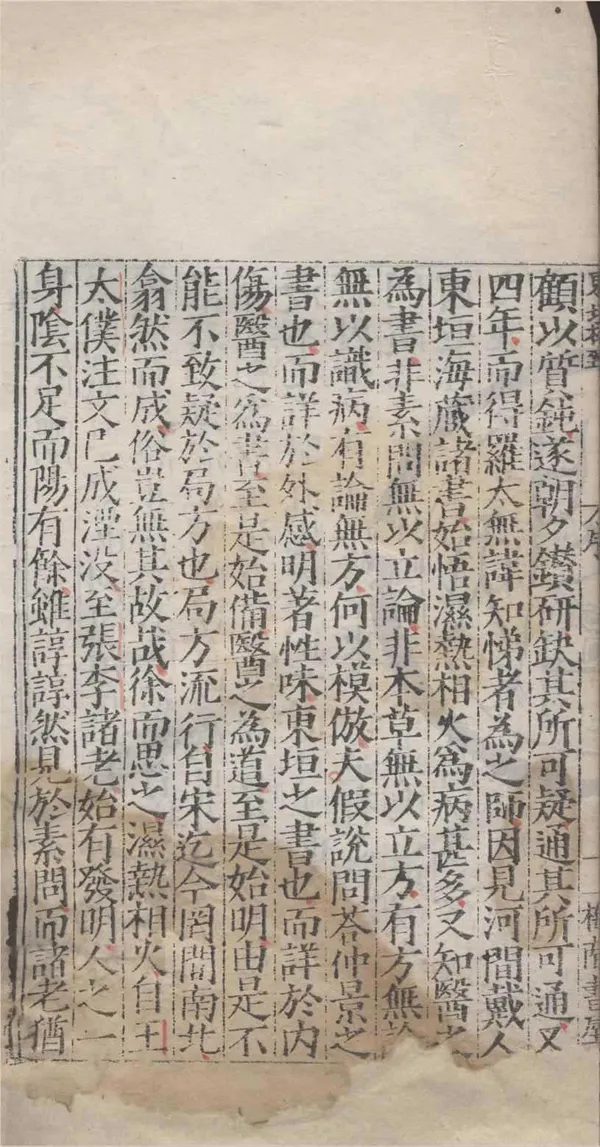 顧以質鈍遂朝夕鑚研缺其所可疑通其所可通又
四年而得羅太無諱知悌者為之師因見河間戴人
東垣海藏諸書始悟濕熱相火為病甚多又知醫之
為書非素問無以立論非本草無以立方有方無論
無以識病有論無方何以模倣夫假說問荅仲景之
書也而詳於外感明著性味東垣之書也而詳於内
傷醫之為書至是始備醫之為道至是始明由是不
能不致疑於局方也局方流行自宋迄今罔間南北
翕然而成俗豈無其故哉徐而思之濕熱相火自王
太僕注文已成湮没至張李諸老始有發明人之一
身陰不足而陽有餘雖諄諄然見於素問而諸老猶